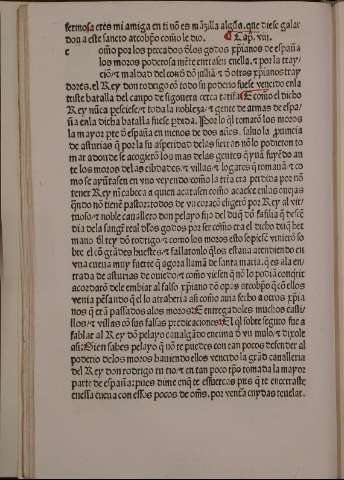 fermosa eres mi amiga en ti nõ es mãzilla algũa. que diese galar
don a este sancto arçobpo como le dio. Cap. viij.
como por los peccados dlos godos xpianos de españa
los moros poderosa mẽte entrasen en ella. por la tray
ciõ y maldad del cond dõ julliã y d otros xpianos tray
dores. el Rey don rodrigo cõ todo su poderio fuese vencido en la
triste batalla del canpo de sigonera cerca tarifa. E como el dicho
Rey nũca pesciese y toda la nobleza y gente de armas de espa
ña en la dicha batalla fuese pdida. Por lo ql tomarõ los moros
la mayor pte d españa en menos de dos años. saluo la prouincia
de asturias q por la su asperidad delas sierras nõ le podieron to
mar adonde se acogierõ los mas delas gentes q yuã fuyẽdo an
te los moros delas cibdades y villas y logares q tomauã y co
mo se ayũtasen en vno veyendo como la trra era perdida por nõ
tener Rey nĩ cabeça a quien acatasen como acaesce en las ouejas
qndo nõ tienẽ pastor: todos de vn coraçõ eligerõ por Rey al vir
tuoso y noble cauallero don pelayo fijo del duq dõ fafila q desçẽ
dia dela sangre real dlos godos por ser como era el dicho duq her
mano dl rey dõ rodrigo y como los moros esto sopiesẽ viniero so
bre el cõ grãdes huestes y fallatonlo qlos estaua atendiendo en
vna cueua muy fuerte q agora llamã de santa maria. q es ala en
trada de asturias de ouiedo y como viesen q nõ lo podiã conqrir
acordarõ dele embiar al falso xpiano dõ opas arçobpo q cõ ellos
venia pẽsando q el lo atraheria asi como auia fecho a otros xpia
nos q erã passados alos moros: E entregadoles muchos casti
llos y villas cõ sus falsas predicaciones: El ql sobre seguro fue a
fablar al Rey dõ pelayo caualgãdo encima d vn mulo y dixole
asi: Bien sabes pelayo q nõ te puedes con tan pocos defender al
poderio delos moros hauiendo ellos vencido la grãd caualleria
del Rey don rodrigo tu tio y en tan poco tpo tomada la mayor
parte de españa: pues dime en q te esfuerças pus q te encerraste
en essa cueua con essos pocos de oms. por ventura cuydas reuelar.